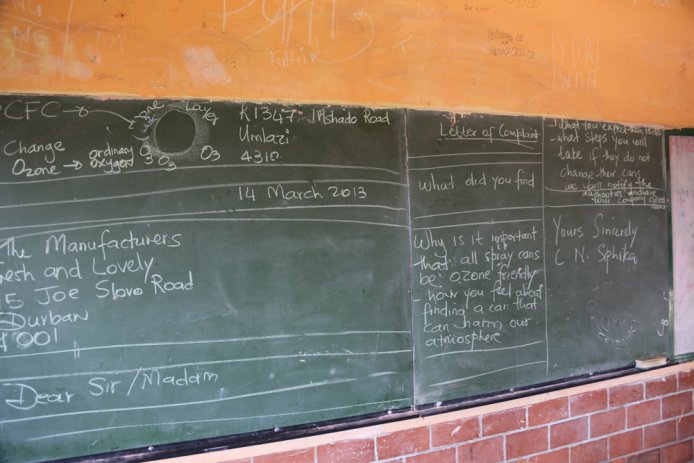 CFC →
Layer
Change
Ozone → ordinary
oxygen
O3
O3
O3
K1347 Road
Umlazi
4310
14 March 2013
The Manufacturers
Fresh and Lovely
Joe Slovo Road
Durban
4001
Dear Sir/Madam
Letter of Complaint
What did you find
Why is it important
that all spray cans
be ozone friendly
- how you feel about
finding a can that
can harm our
atmosphere
- What you expect
- what steps you will
take if they do not
change their cans
we will notify the
authorities
your company closed
Yours Sincerely
C. N. Sphika